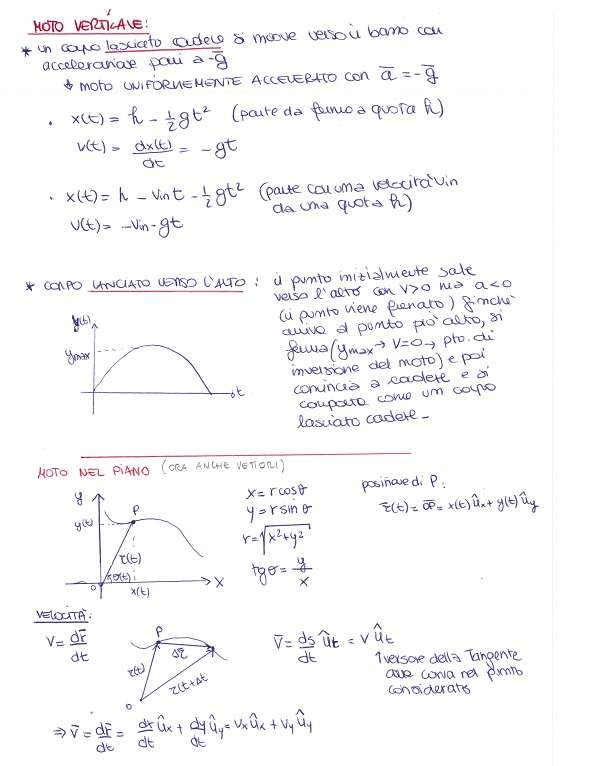 MOTO VERTICALE:
* un corpo lasciato cadere si muove verso il basso con
accelerazione pari a -g̅
↳ MOTO UNIFORMEMENTE ACCELERATO con a̅ = -g̅
• x(t) = h - 1/2 gt² (parte da fermo a quota h)
v(t) = dx(t)/dt = -gt
• x(t) = h - Vin t - 1/2 gt² (parte con una velocità Vin
da una quota h)
v(t) = -Vin - gt
* CORPO LANCIATO VERSO L'ALTO: il punto inizialmente sale
verso l'alto con v>0 ma a<0
(il punto viene frenato) finché
arriva al punto più alto, si
ferma (ymax → v=0 → pto. di
inversione del moto) e poi
comincia a cadere e si
comporta come un corpo
lasciato cadere -
y(t)
ymax
t
MOTO NEL PIANO (ORA ANCHE VETTORI)
y
P
y(t)
r(t)
θ(t)
O
x(t)
x
x = r cosθ
y = r sinθ
r = √x²+y²
tgθ = y/x
posizione di P:
r̅(t) = O̅P̅ = x(t) ûx + y(t) ûy
VELOCITÀ:
V = dr̅/dt
P
Δr̅
r(t)
r(t+Δt
O
v̅ = ds/dt ût = v ût
↑ versore della Tangente
alla curva nel punto
considerato
⇒ v̅ = dr̅/dt = dx/dt ûx + dy/dt ûy = Vx ûx + Vy ûy